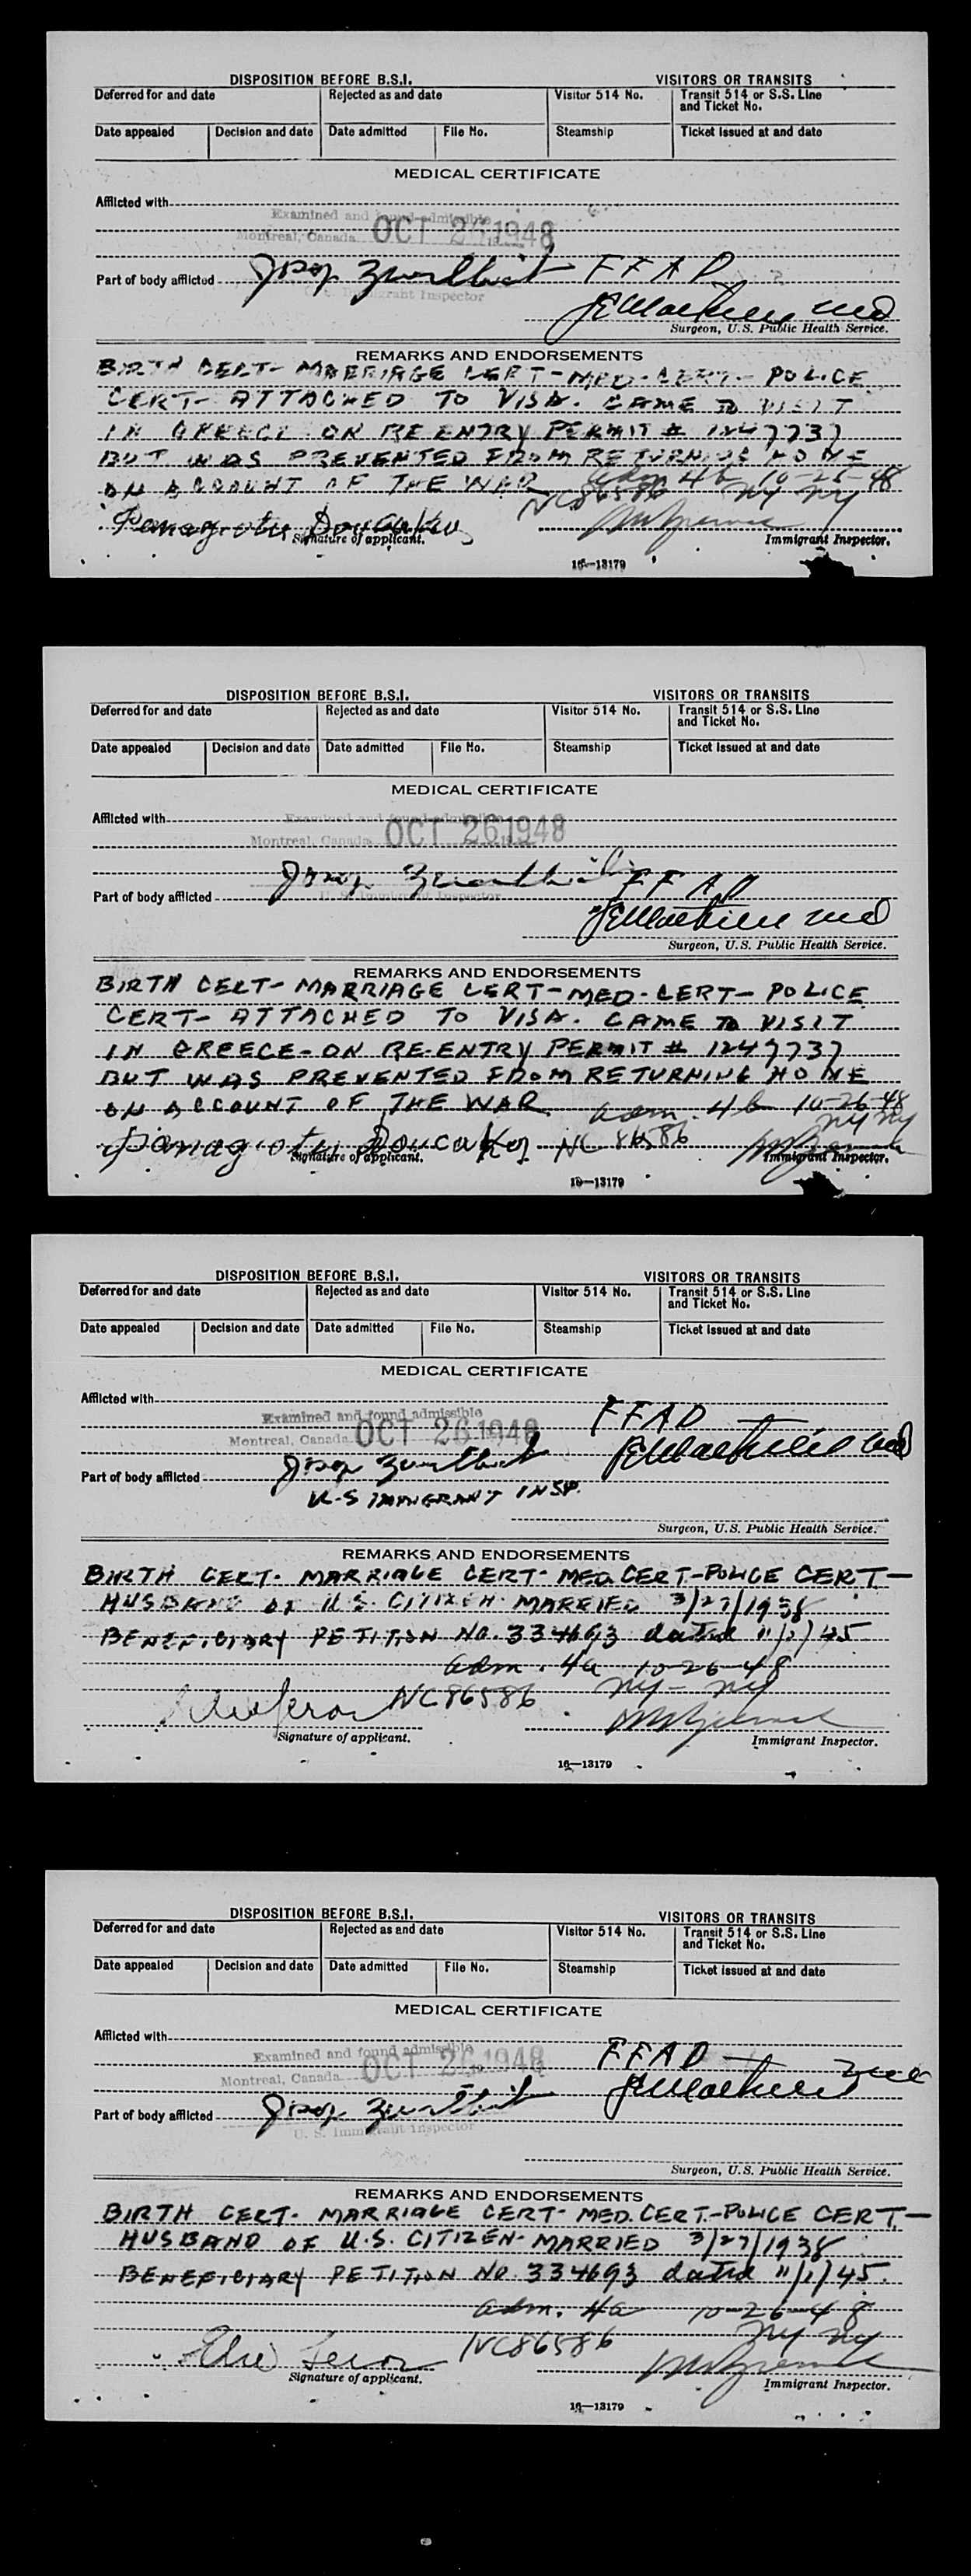 DISPOSITION BEFORE B.S.I. VISITORS OR TRANSITS
Deferred for and date Rejected as and date Visitor 514 No. Transit 514 or S.S. Line and Ticket No.
Date appealed Decision and date Date admitted File No. Steamship Ticket issued at and date
MEDICAL CERTIFICATE
Afflicted with
Examined and found admissible
Montreal, Canada OCT 26 1948
Part of body afflicted FFAD
Immigrant Inspector
md
Surgeon, U.S. Public Health Service.
REMARKS AND ENDORSEMENTS
BIRTH CERT- MARRIAGE CERT-MED-CERT- POLICE
CERT- ATTACHED TO VISA. CAME TO VISIT
IN GREECE ON RE ENTRY PERMIT # 1247737
BUT WAS PREVENTED FROM RETURNING HOME
ON ACCOUNT OF THE WAR adm 4b 10-26-48
NC86586 NY NY
Signature of applicant. Immigrant Inspector.
16-13179
DISPOSITION BEFORE B.S.I. VISITORS OR TRANSITS
Deferred for and date Rejected as and date Visitor 514 No. Transit 514 or S.S. Line and Ticket No.
Date appealed Decision and date Date admitted File No. Steamship Ticket issued at and date
MEDICAL CERTIFICATE
Afflicted with
Examined and found admissible
Montreal, Canada OCT 26 1948
Part of body afflicted FFAD
U. S. Immigrant Inspector
md
Surgeon, U.S. Public Health Service.
REMARKS AND ENDORSEMENTS
BIRTH CERT- MARRIAGE CERT-MED-CERT- POLICE
CERT- ATTACHED TO VISA. CAME TO VISIT
IN GREECE-ON RE-ENTRY PERMIT # 1247737
BUT WAS PREVENTED FROM RETURNING HOME
ON ACCOUNT OF THE WAR adm. 4b 10-26-48
NY NY
NC 86586
Signature of applicant. Immigrant Inspector.
16-13179
DISPOSITION BEFORE B.S.I. VISITORS OR TRANSITS
Deferred for and date Rejected as and date Visitor 514 No. Transit 514 or S.S. Line and Ticket No.
Date appealed Decision and date Date admitted File No. Steamship Ticket issued at and date
MEDICAL CERTIFICATE
Afflicted with
Examined and found admissible FFAD
Montreal, Canada OCT 26 1948
Part of body afflicted
U-S IMMIGRANT INSP.
Surgeon, U.S. Public Health Service.
REMARKS AND ENDORSEMENTS
BIRTH CERT- MARRIAGE CERT- MED. CERT-POLICE CERT-
HUSBAND OF U.S. CITIZEN- MARRIED 3/27/1938
BENEFICIARY PETITION NO. 334693 dated 11/1/45
adm. 4a 10-26-48
NC86586 NY- NY
Signature of applicant. Immigrant Inspector.
16-13179
DISPOSITION BEFORE B.S.I. VISITORS OR TRANSITS
Deferred for and date Rejected as and date Visitor 514 No. Transit 514 or S.S. Line and Ticket No.
Date appealed Decision and date Date admitted File No. Steamship Ticket issued at and date
MEDICAL CERTIFICATE
Afflicted with
Examined and found admissible FFAD
Montreal, Canada OCT 26 1948
Part of body afflicted
U. S. Immigrant Inspector
Surgeon, U.S. Public Health Service.
REMARKS AND ENDORSEMENTS
BIRTH CERT- MARRIAGE CERT- MED. CERT.-POLICE CERT.-
HUSBAND OF U.S. CITIZEN- MARRIED 3/27/1938
BENEFICIARY PETITION NO. 334693 dated 11/1/45.
adm. 4a 10-26-48
NC86586 NY NY
Signature of applicant. Immigrant Inspector.
16-13179